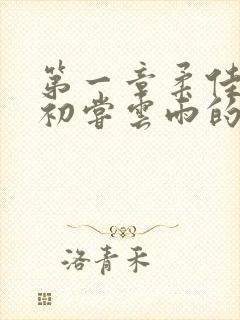 第一章柔佳
初尝雲雨的
洛青禾